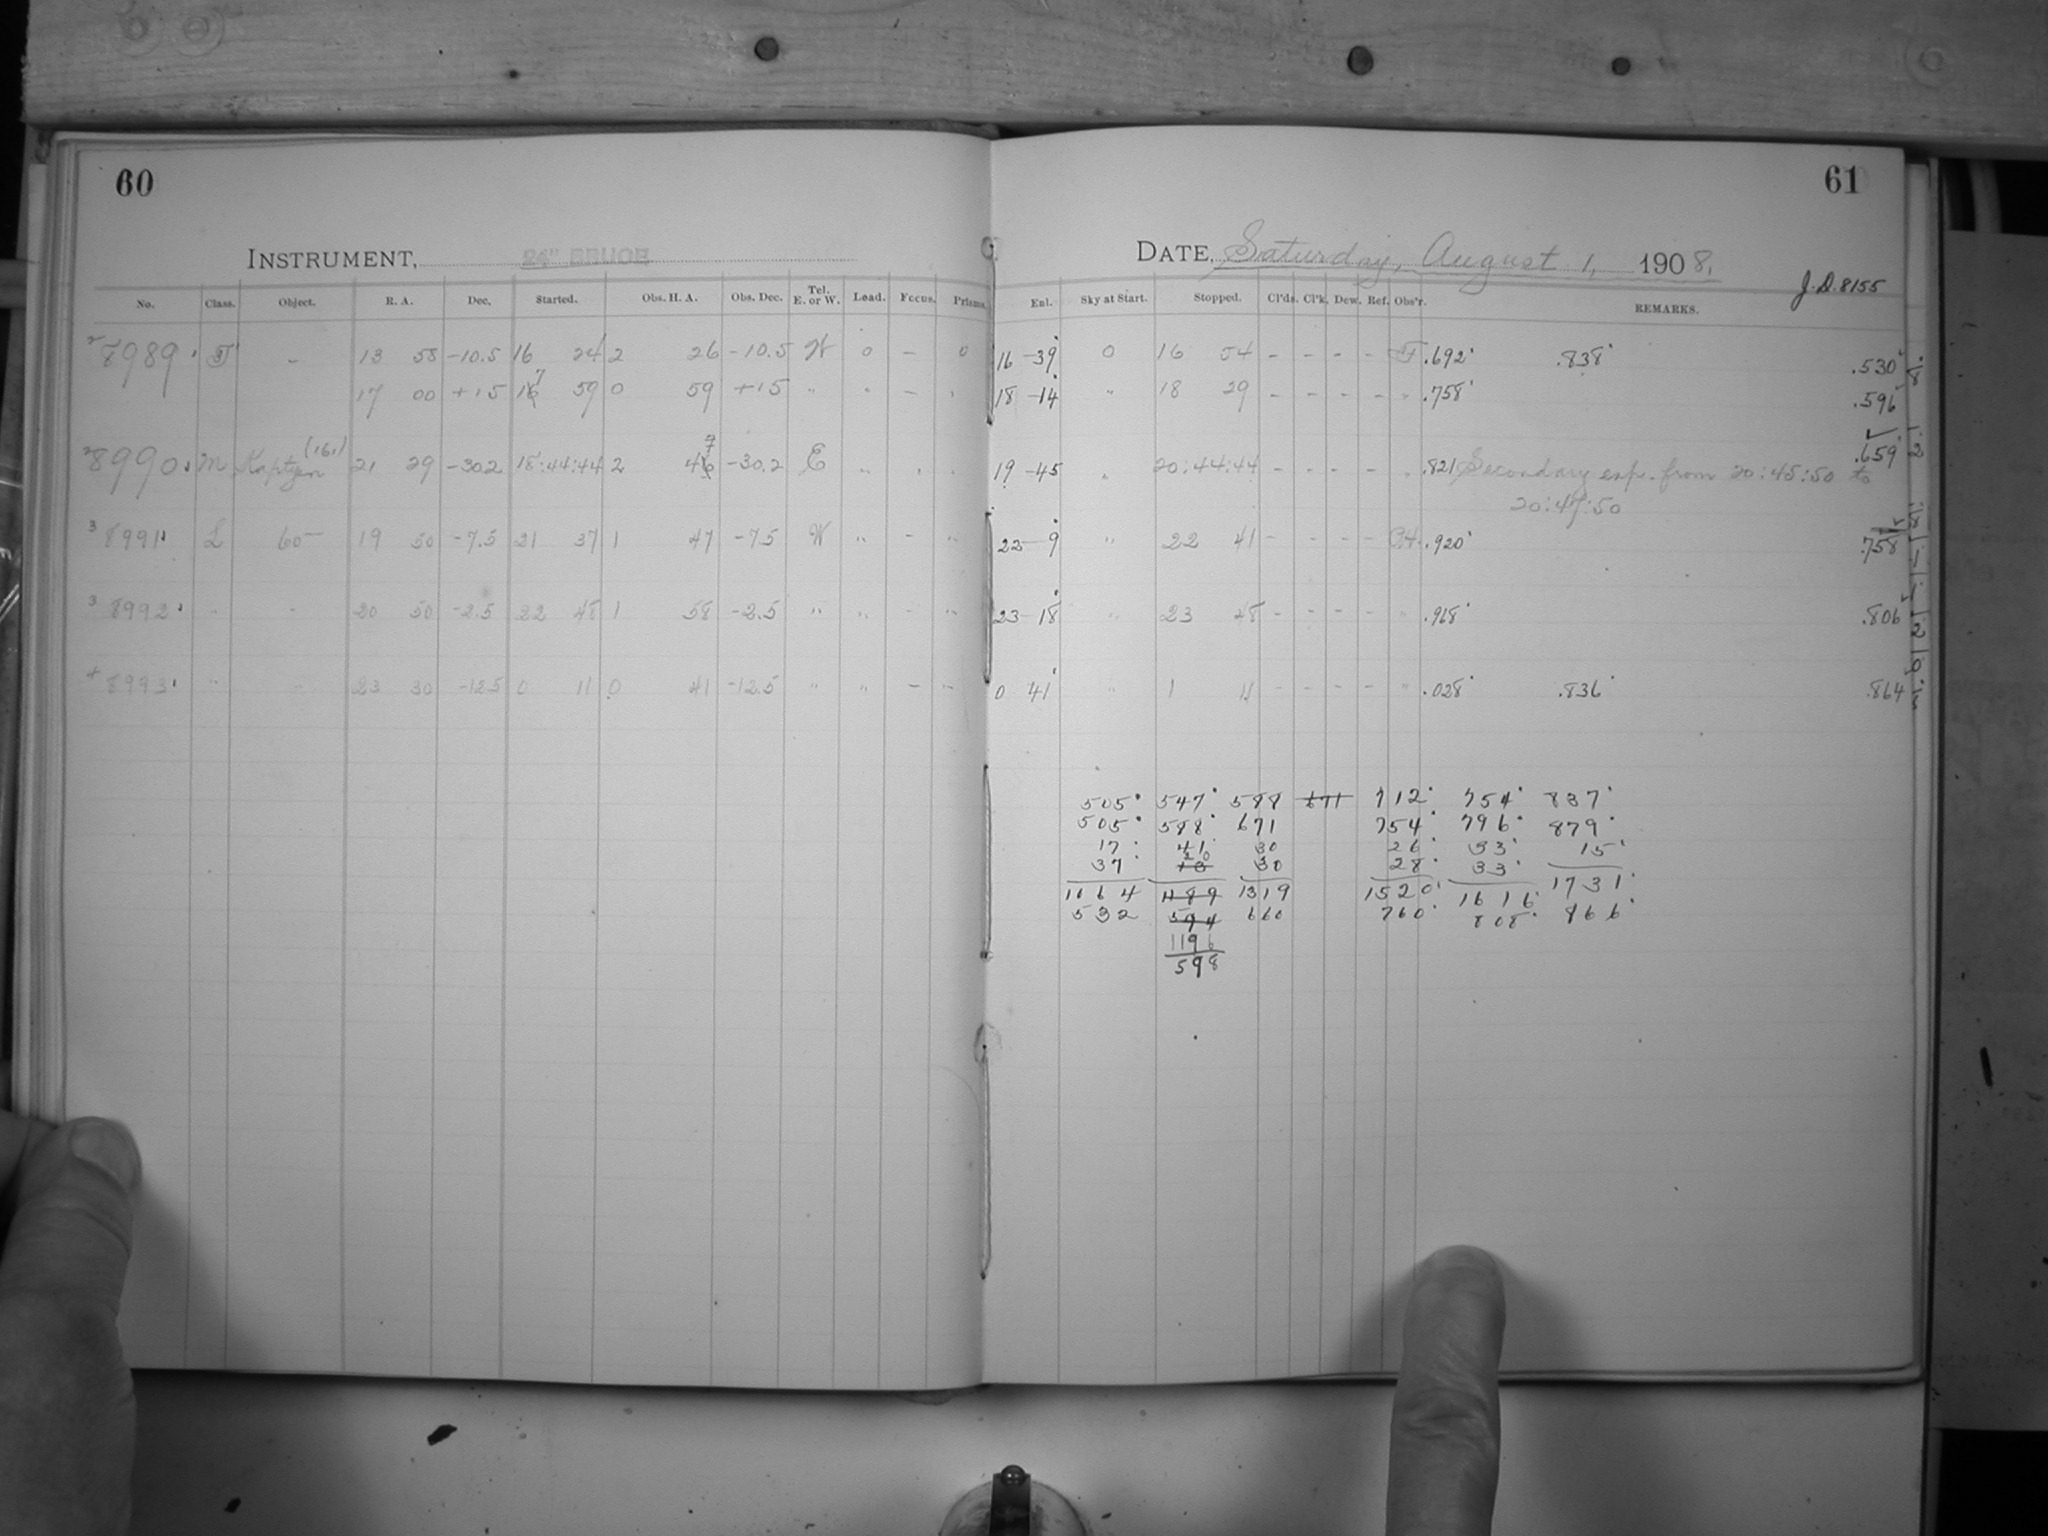 60
61
INSTRUMENT, 24" BRUCE
DATE, Saturday, August 1, 1908.
J.D. 8155
No. Class. Object. R. A. Dec. Started. Obs. H. A. Obs. Dec. Tel. E. or W. Load. Focus. Prisms.
Exl. Sky at Start. Stopped. Cl'ds. Cl'k. Dew. Ref. Obs'r. REMARKS.
2 8989 - 13 58 -10.5 16 24 2 26 -10.5 W 0 - 0 16-39 0 16 54 - - - - .692 .838 .530
17 00 +15 17 59 0 59 +15 " " - " 18-14 " 18 29 - - - - " .758 .596
8990 M Kapteyn (161) 21 29 -30.2 18:44:44 2 47 -30.2 E " " " 19-45 " 20:44:44 - - - - " .821 Secondary exp. from 20:45:50 to .659
20:47:50
3 8991 L 60 19 50 -7.5 21 37 1 47 -7.5 W " - " 22-9 " 22 41 - - - - .920 .758
3 8992 " " 20 50 -2.5 22 48 1 58 -2.5 " " - " 23-18 " 23 48 - - - - " .968 .806
4 8993 " " 23 30 -12.5 0 11 0 41 -12.5 " " - " 0 41 " 1 11 - - - - " .028 .836 .864
505 547 588 671 712 754 837
505 588 671 754 796 879
17 41 30 26 33 15
37 20 30 28 33
1064 1189 1319 1520 1616 1731
532 594 660 760 808 866
1196
598